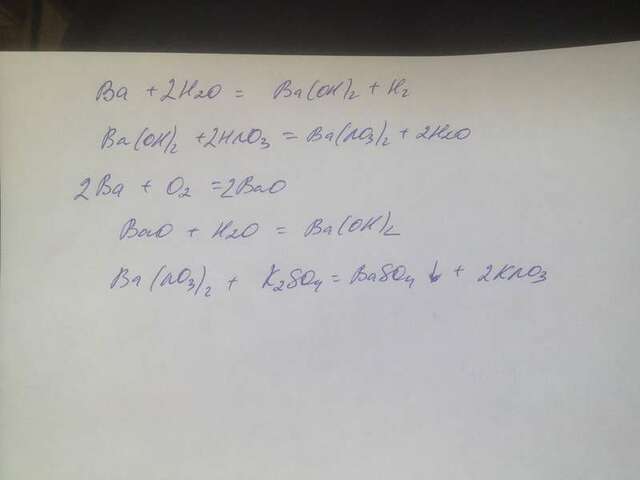 Ba + 2H2O = Ba(OH)2 + H2
Ba(OH)2 + 2HNO3 = Ba(NO3)2 + 2H2O
2Ba + O2 = 2BaO
BaO + H2O = Ba(OH)2
Ba(NO3)2 + K2SO4 = BaSO4 ↓ + 2KNO3